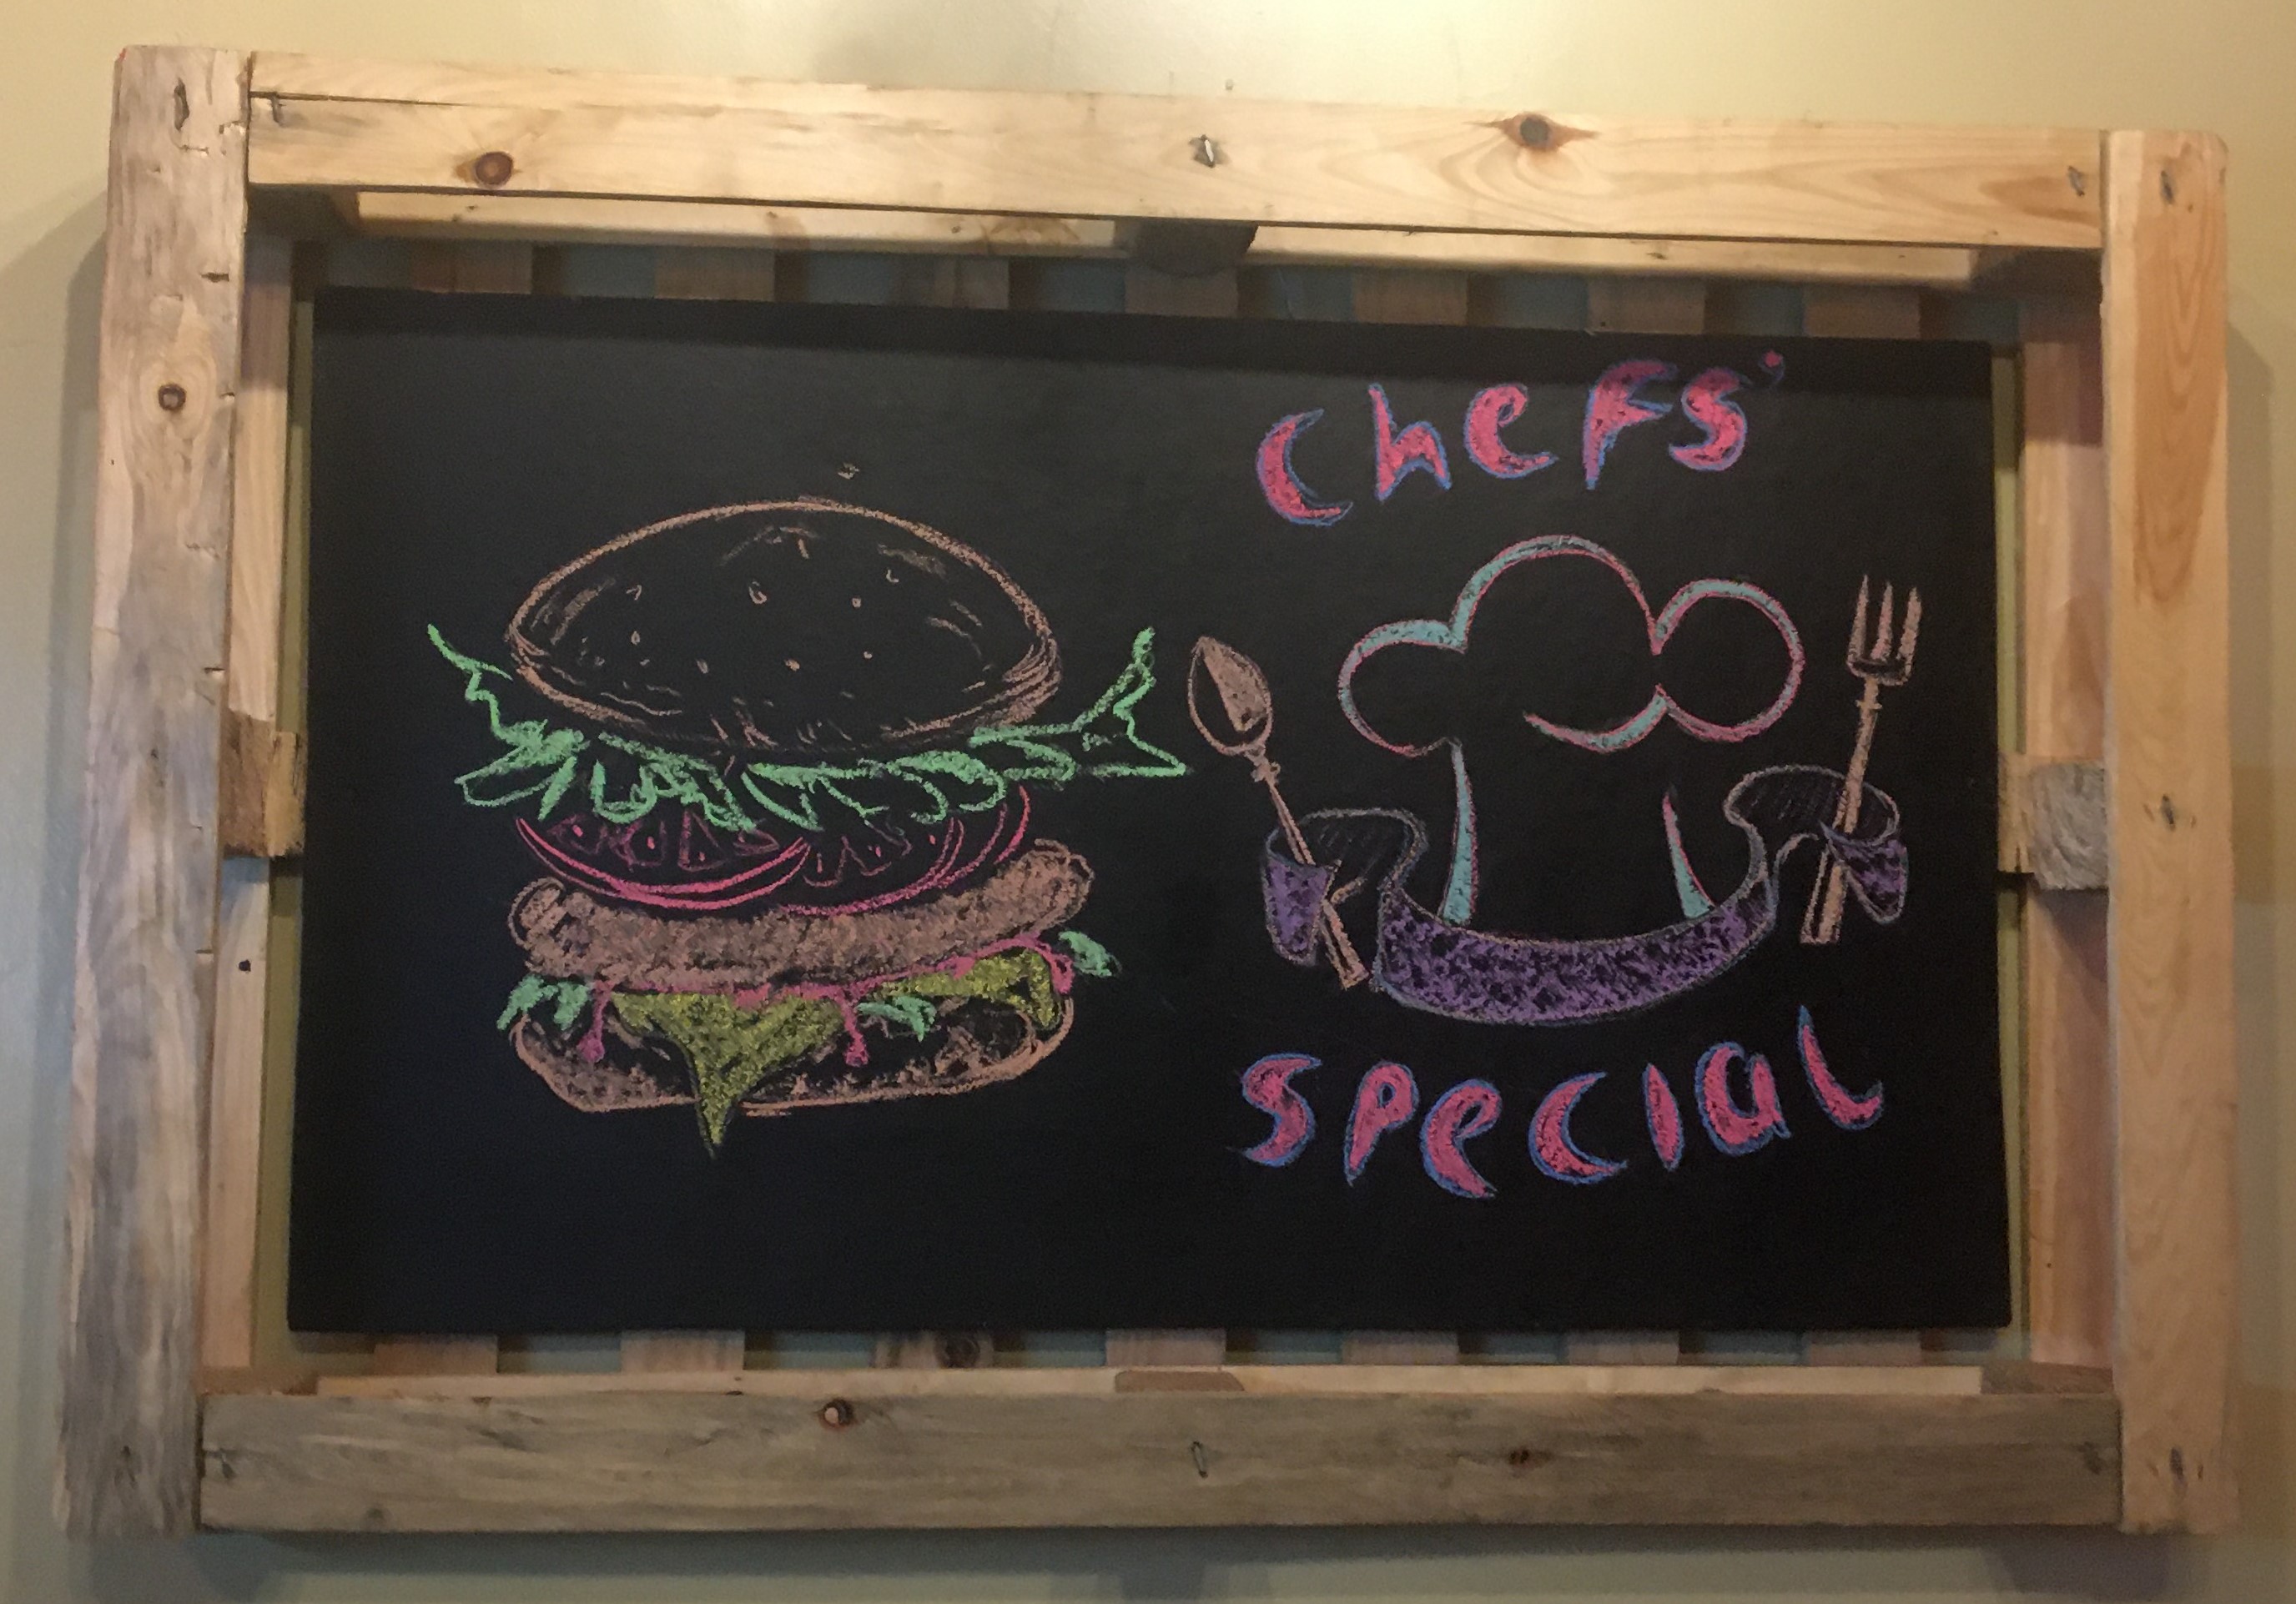 Chefs'
Special